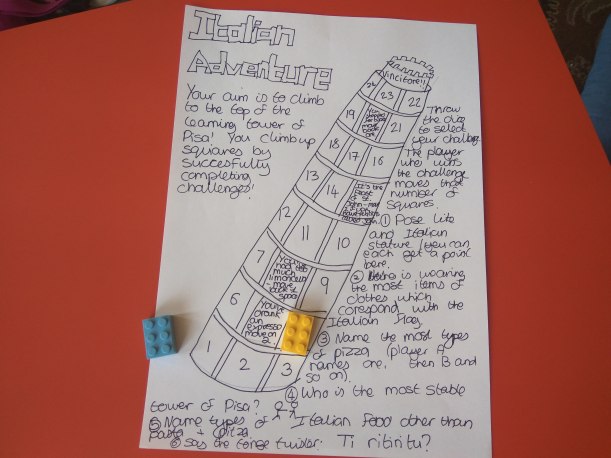 Italian
Adventure
Your aim is to climb
to the top of the
leaning tower of
Pisa! You climb up
squares by
succesfully
completing
challenges!
Vincitore!!
24 23 22
19 21
18 17 16
13 14 It's the
feast
of St
John - move
12 11 10
7 You've
had too
much
limoncello
- move
back 1
space 9
6 You've
drank
an
espresso
move on
2.
1 2 3
Throw
the dice
to select
your challenge.
The player
who wins
the challenge
moves that
number of
squares.
① Pose like
and Italian
stature (you can
each get a point
here.
② Who is wearing
the most items of
clothes which
correspond with the
Italian flag.
③ Name the most types
of pizza (player A
names one, then B and
so on).
④ Who is the most stable
tower of Pisa?
⑤ Name types of Italian food other than
pasta + pizza.
⑥ Say the tongue twister: Ti ritiritu?